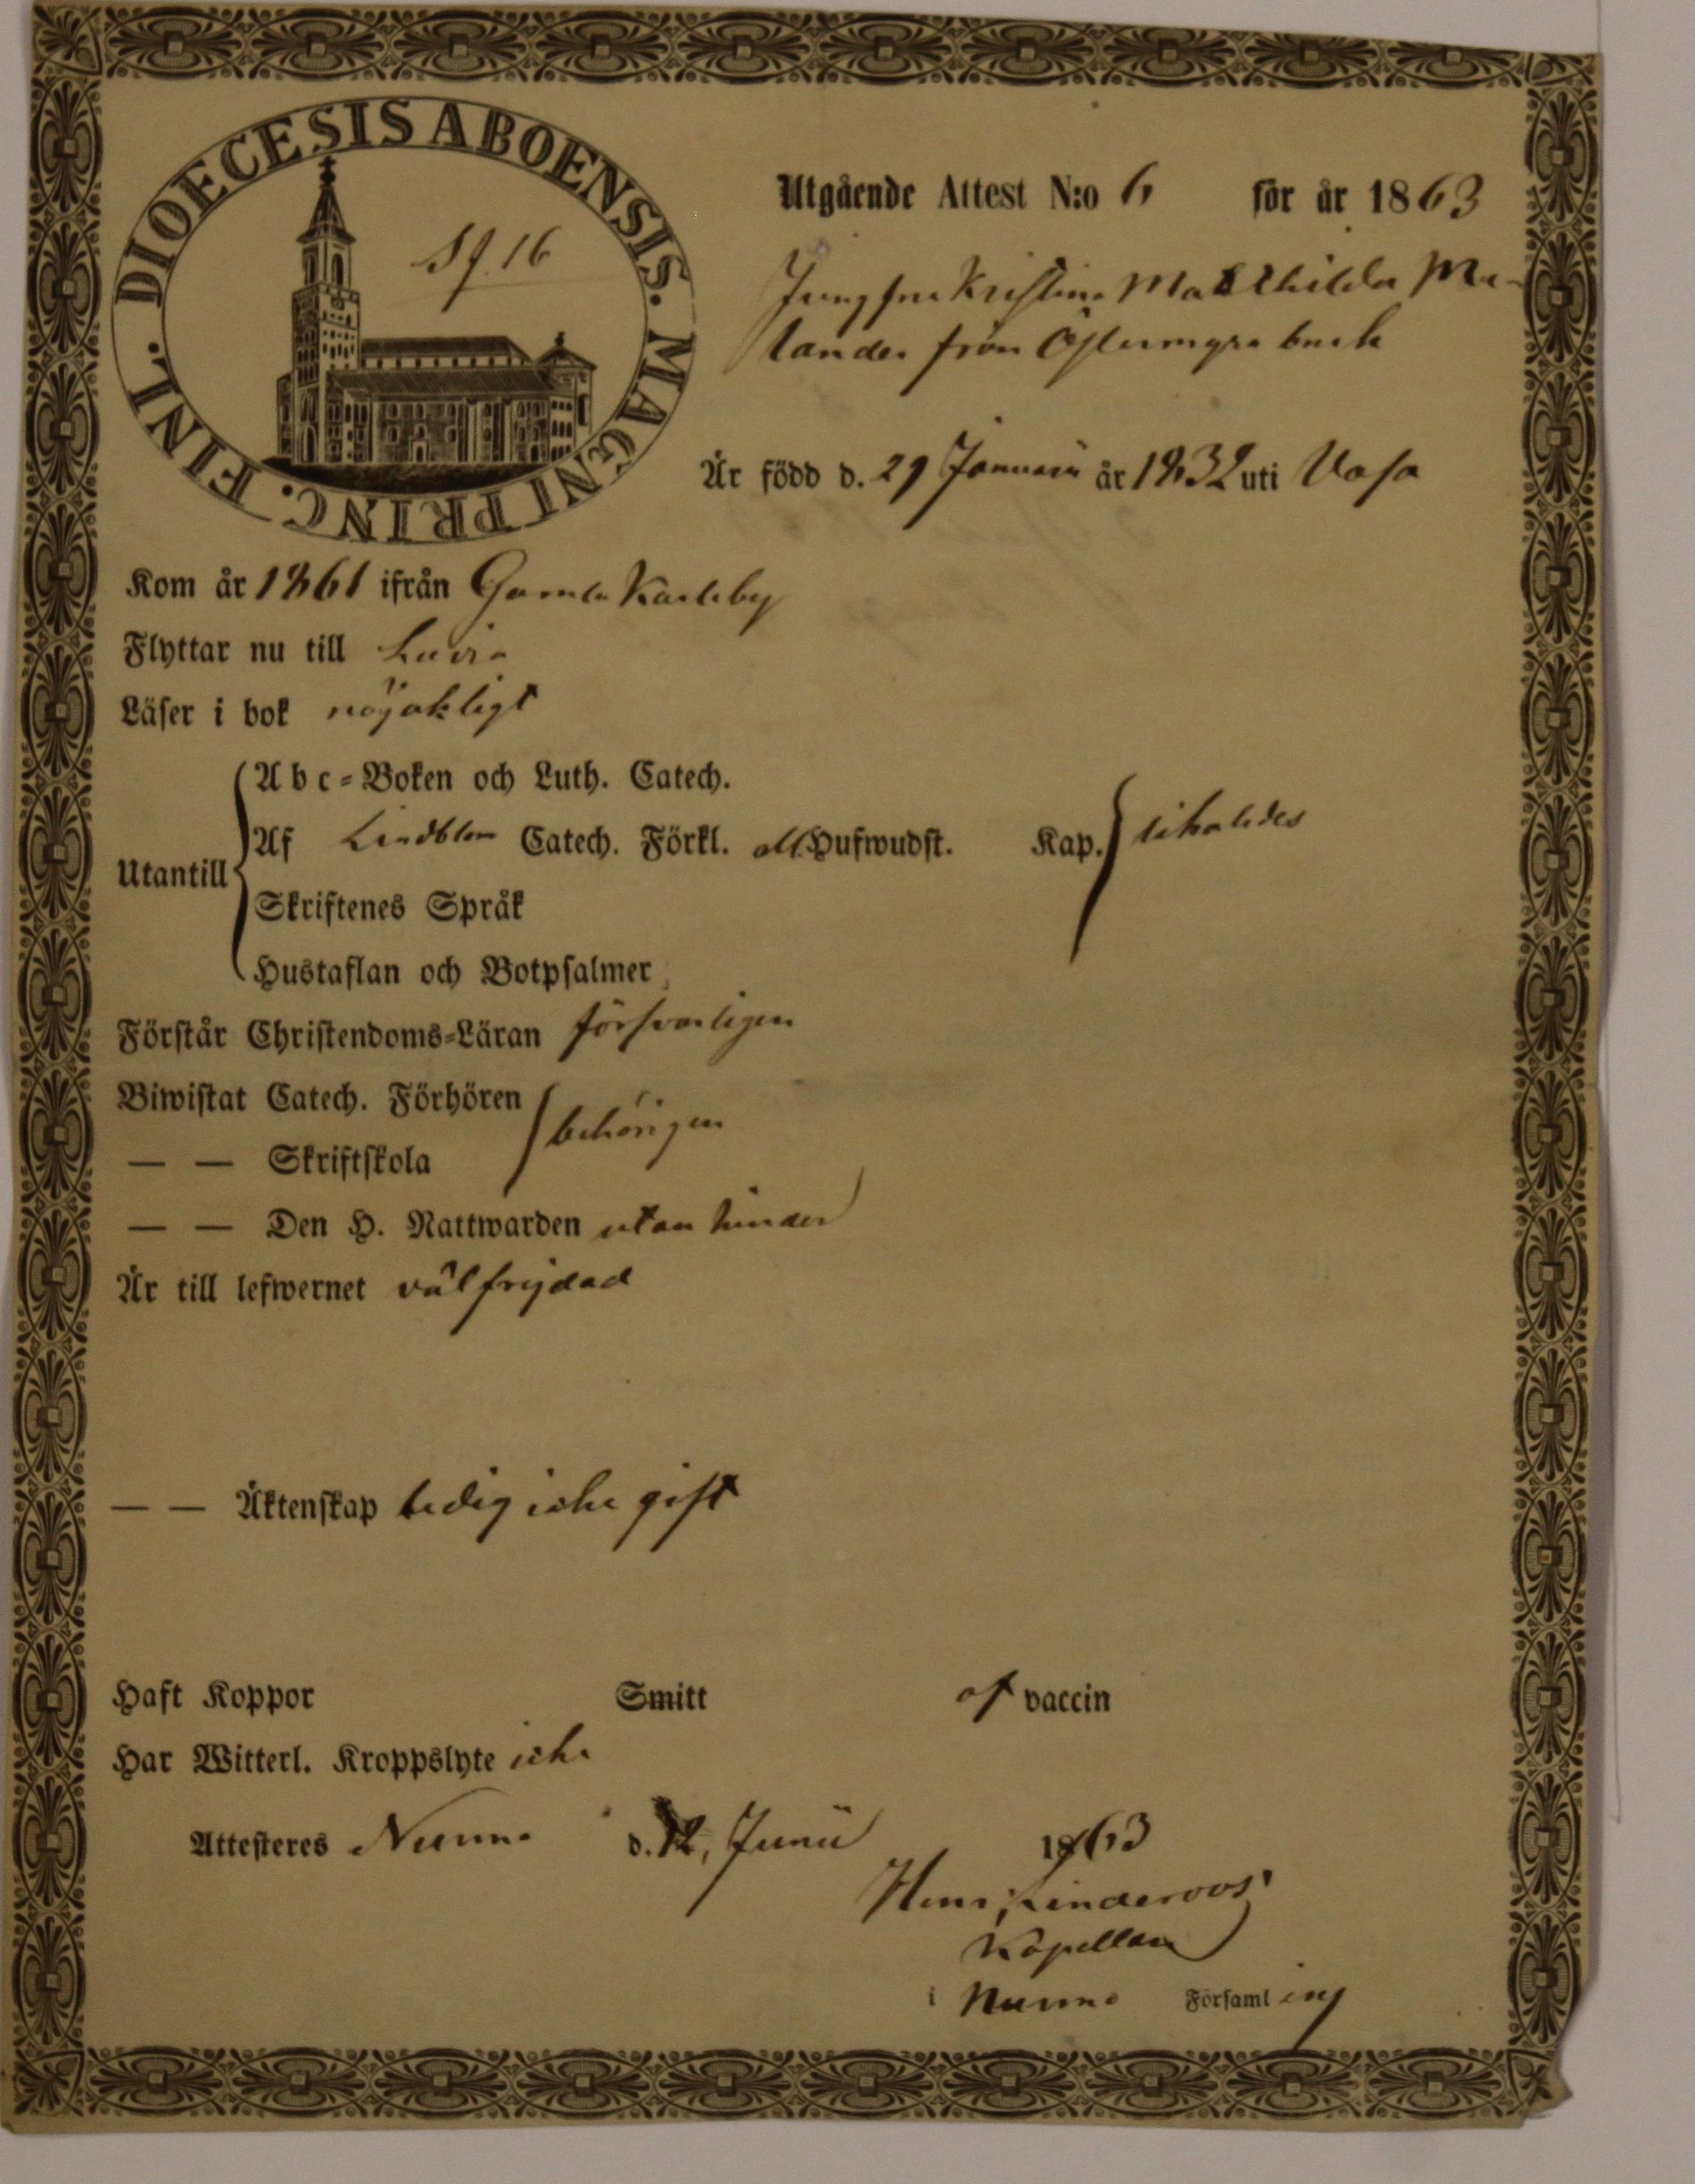 DIOECESIS ABOENSIS. MAGNI PRINC. FINL.
Sf. 16
Utgående Attest N:o 6 för år 1863
Jungfru Kristina Mathilda Me-
lander från Östermyra bruk
Är född d. 29 Januarii år 1832 uti Vasa
Kom år 1861 ifrån Gamla Karleby
Flyttar nu till Luvia
Läser i bok nöjakligt
Utantill
Abc-Boken och Luth. Catech.
Af Lindblom Catech. Förkl. all Hufwudst. Kap. likaledes
Skriftenes Språk
Hustaflan och Botpsalmer
Förstår Christendoms-Läran försvarligen
Biwistat Catech. Förhören behörigen
— — Skriftskola
— — Den H. Nattwarden utan hinder
Är till lefwernet välfrejdad
— — Äktenskap ledig icke gift
Haft Koppor Smitt af vaccin
Har Witterl. Kroppslyte icke
Attesteres Nurmo d. 12, Junii 1863
Henr. Linderoos
Kapellan
i Nurmo Församling